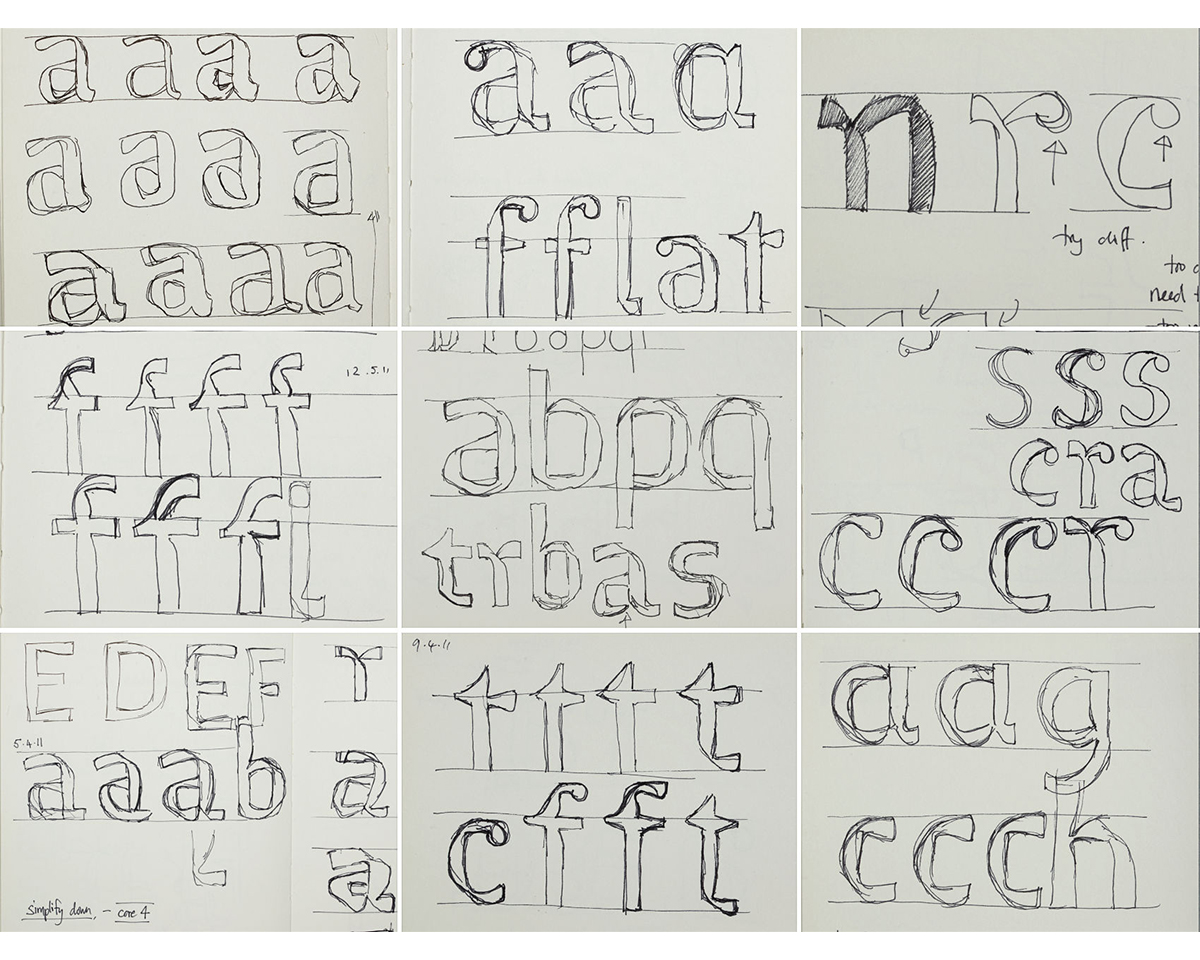 a a a a
a a a a
a a a a
a a a
f f l a t
n r c
try diff.
need
f f f f
12.5.11
f f f i
a b p q
t r b a s
s s s
c r a
c c c r
E D E F
r
5.4.11
a a a b
a
l
a
simplify down, - core 4
9.4.11
t t t t
c f f t
a a g
c c c h